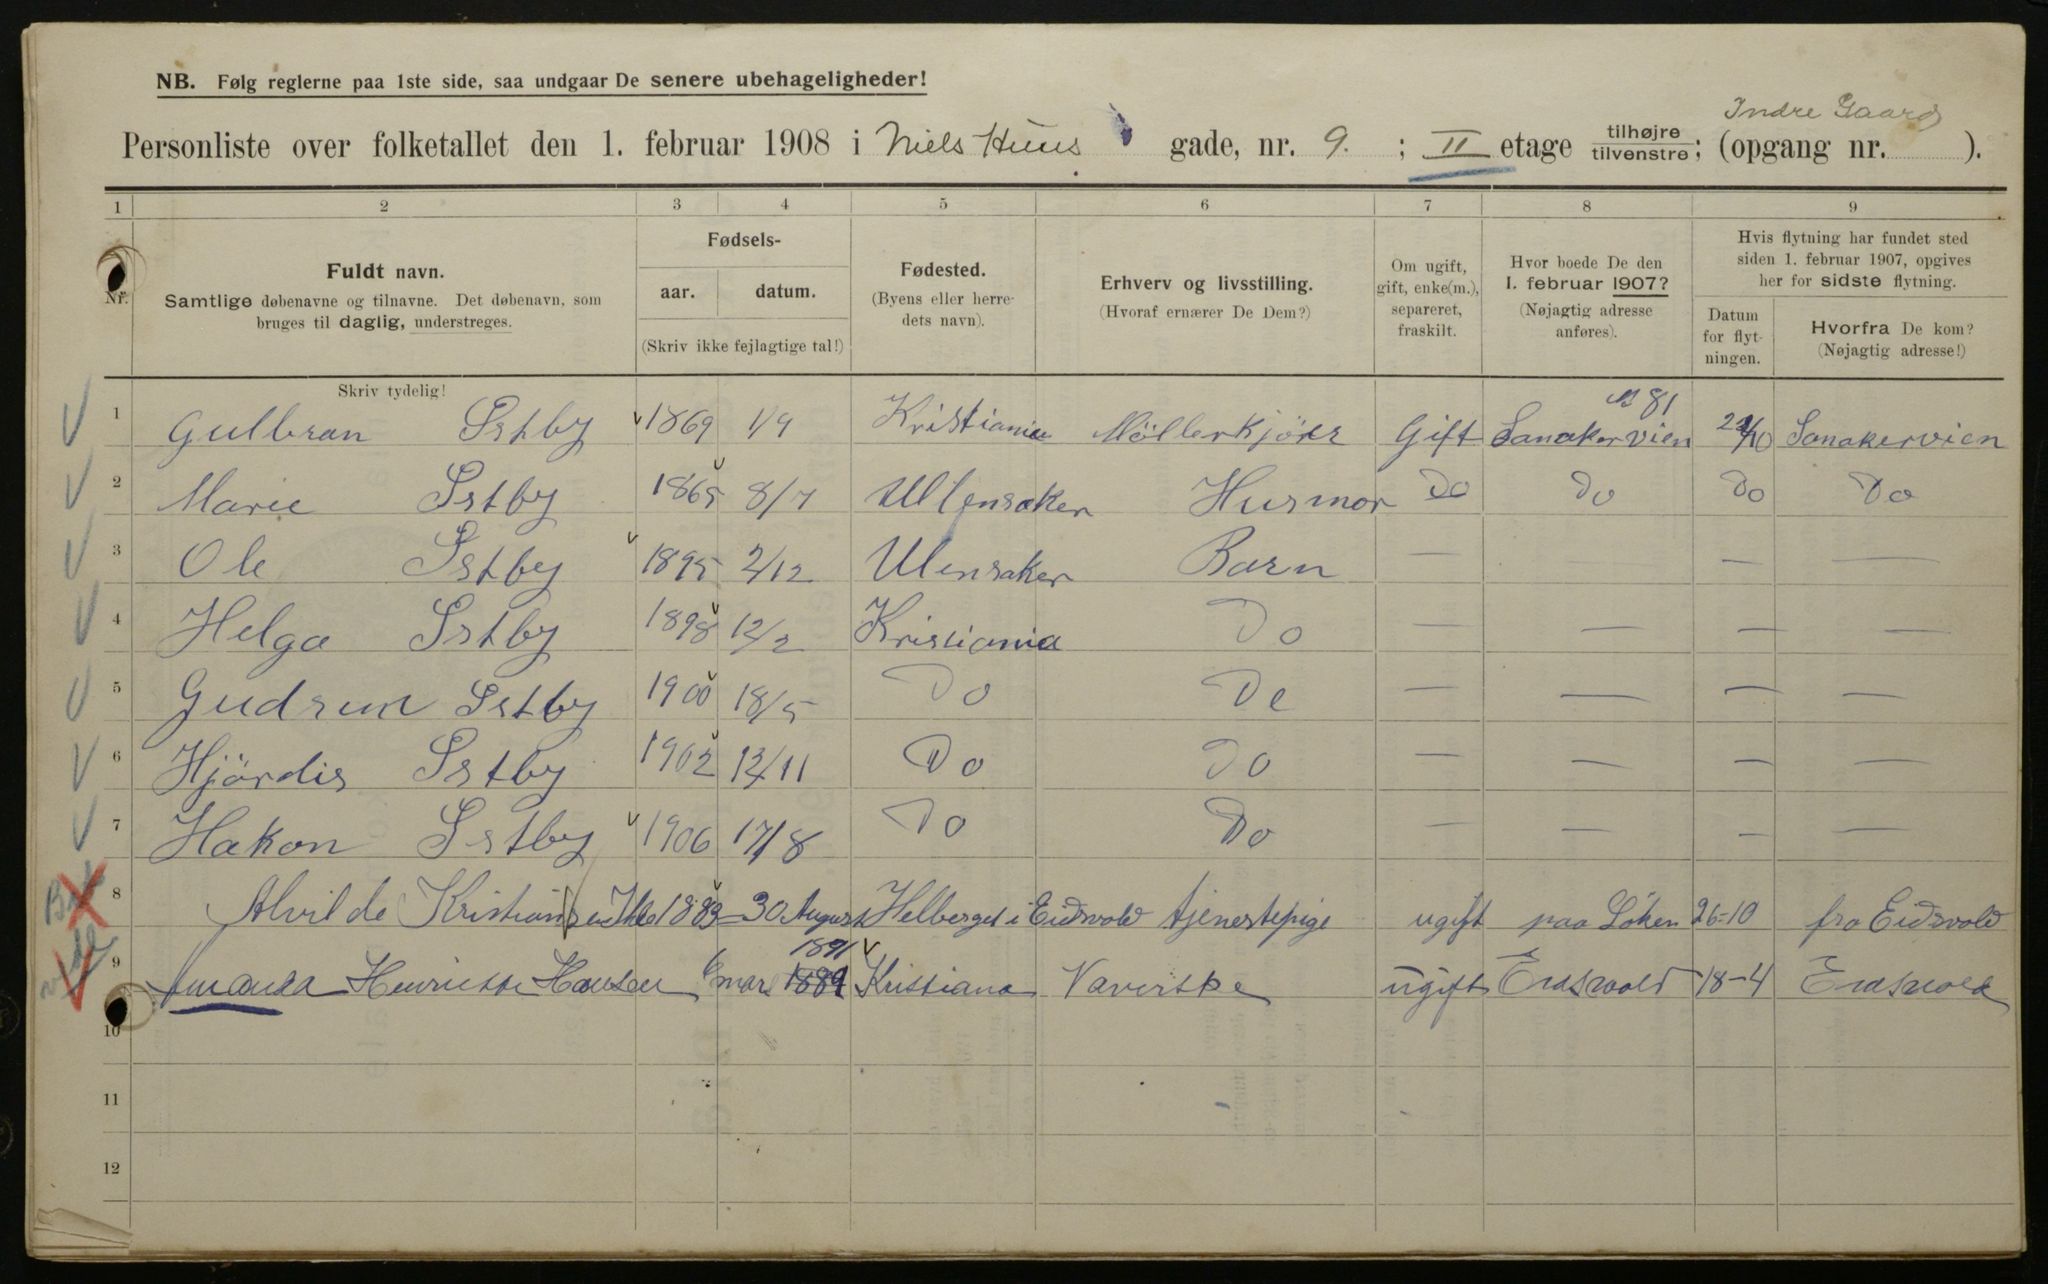 NB. Følg reglerne paa 1ste side, saa undgaar De senere ubehageligheder!
Indre Gaard
Personliste over folketallet den 1. februar 1908 i Niels Huus gade, nr. 9. ; II etage tilhøjre tilvenstre; (opgang nr. ).
1 2 3 4 5 6 7 8 9
Nr.
Fuldt navn.
Samtlige døbenavne og tilnavne. Det døbenavn, som
bruges til daglig, understreges.
Skriv tydelig!
Fødsels-
aar. datum.
(Skriv ikke fejlagtige tal!)
Fødested.
(Byens eller herre-
dets navn).
Erhverv og livsstilling.
(Hvoraf ernærer De Dem?)
Om ugift,
gift, enke(m.),
separeret,
fraskilt.
Hvor boede De den
1. februar 1907?
(Nøjagtig adresse
anføres).
Hvis flytning har fundet sted
siden 1. februar 1907, opgives
her for sidste flytning.
Datum
for flyt-
ningen.
Hvorfra De kom?
(Nøjagtig adresse!)
1 Gulbran Østby 1869 1/9 Kristiania Möllerkjörer Gift Sanakervien 81 Sanakervien
2 Marie Østby 1865 8/7 Ullensaker Husmor Do Do Do Do
3 Ole Østby 1895 2/12 Ulensaker Barn — — —
4 Helga Østby 1898 12/2 Kristiania Do — — — —
5 Gudrun Østby 1900 18/5 Do Do — — — —
6 Hjördis Østby 1902 12/11 Do Do — — — —
7 Hakon Østby 1906 17/8 Do Do — — — —
8 Alvilde Kristiansen 1883 30 August i Eidsvold tjenestepige ugift paa Löken 26-10 fra Eidsvold
9 Amanda Henriette Hansen 6 mars 1891 Kristiana Væverske ugift Eidsvold 18-4 Eidsvold
10
11
12